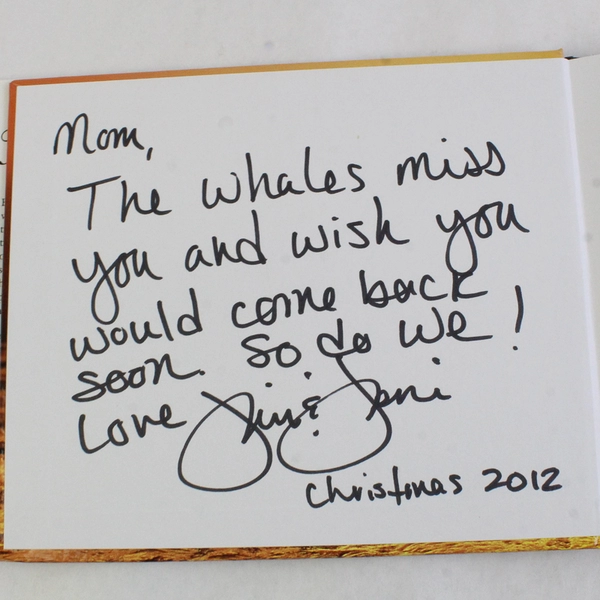 Mom,
The whales miss
you and wish you
would come back
soon. So do we!
Love Jim & Jeni
Christmas 2012